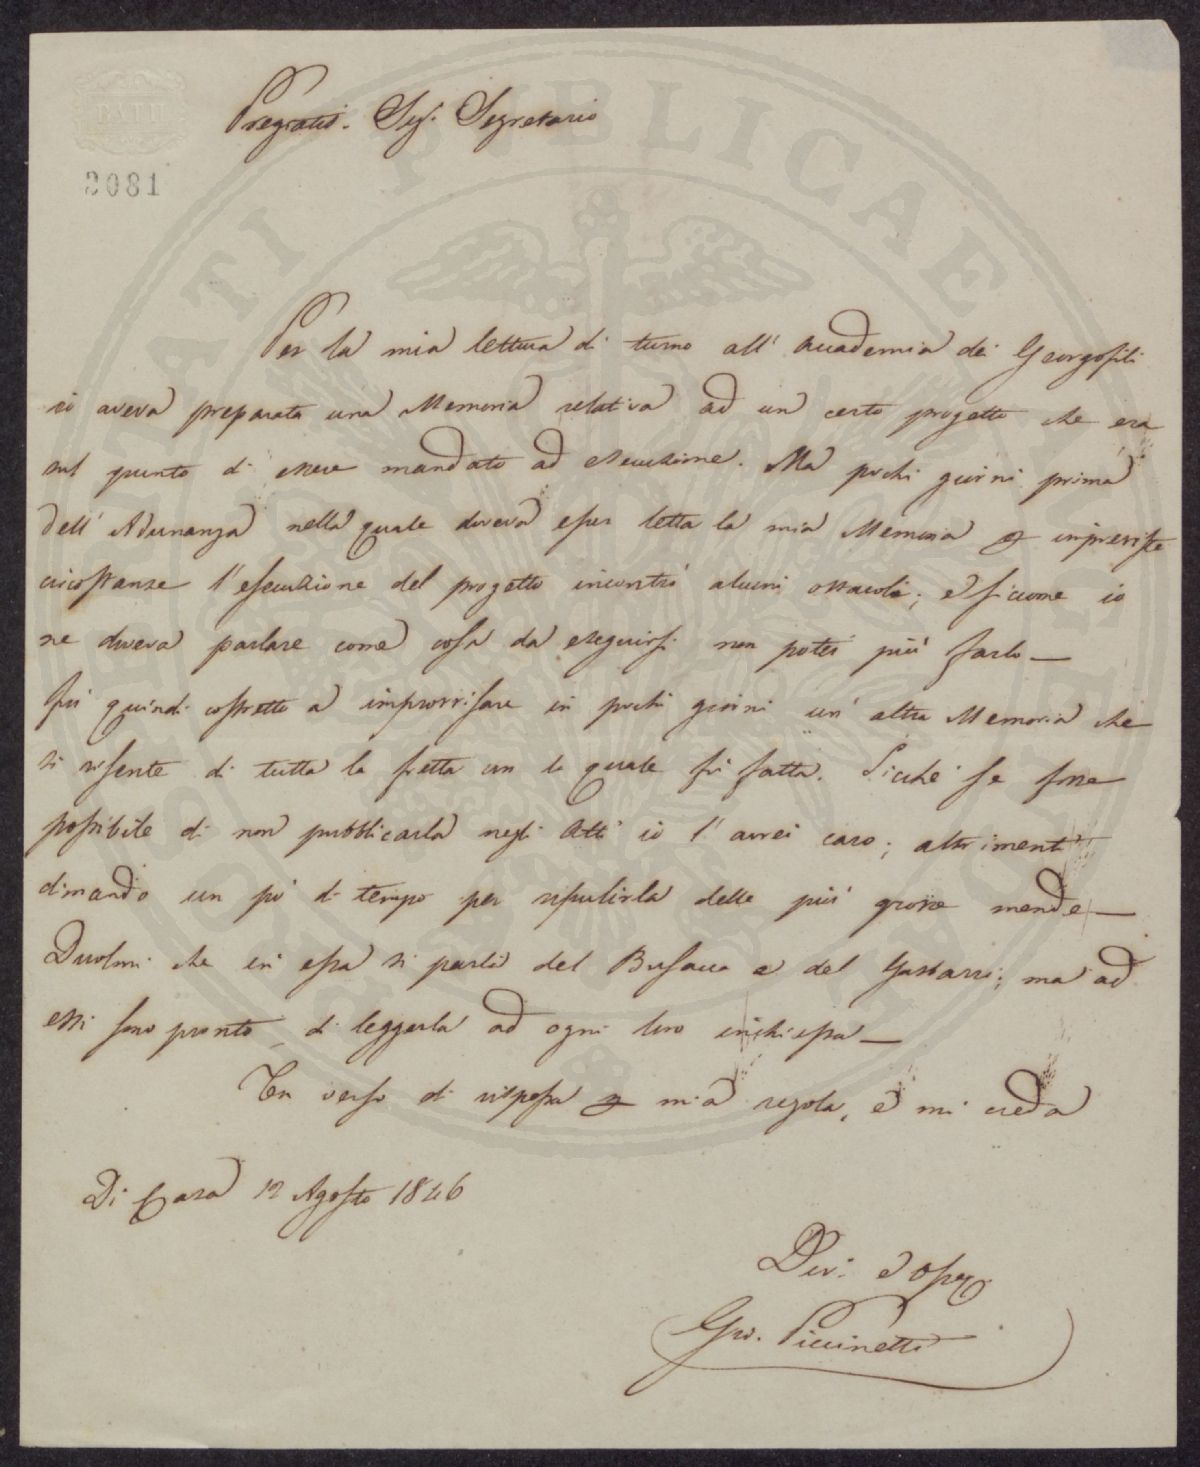 BATH
2081
PUBLICAE
Pregiatis. Sig. Segretario
Per la mia lettura di turno all' Accademia dei Georgofili
io aveva preparata una Memoria relativa ad un certo progetto che era
sul punto di essere mandato ad esecuzione. Ma pochi giorni prima
dell' Adunanza nella quale doveva esser letta la mia Memoria p impreviste
circostanze l'esecuzione del progetto incontrò alcuni ostacoli; e siccome io
ne doveva parlare come cosa da eseguirsi non potei più farlo—
Fui quindi costretto a improvvisare in pochi giorni un' altra Memoria che
si risente di tutta la fretta con la quale fù fatta. Sicchè se fosse
possibile di non pubblicarla negli Atti io l'avrei caro; altrimenti
dimando un pò di tempo per ripulirla delle più grosse mende—
Duolmi che in essa si parli del Busacca e del; ma ad
essi sono pronto di leggerla ad ogni loro inchiesta—
Un verso di risposta p mia regola, e mi creda
Di Casa 12 Agosto 1846
Dev: e Obg
Gio. Piccinetti